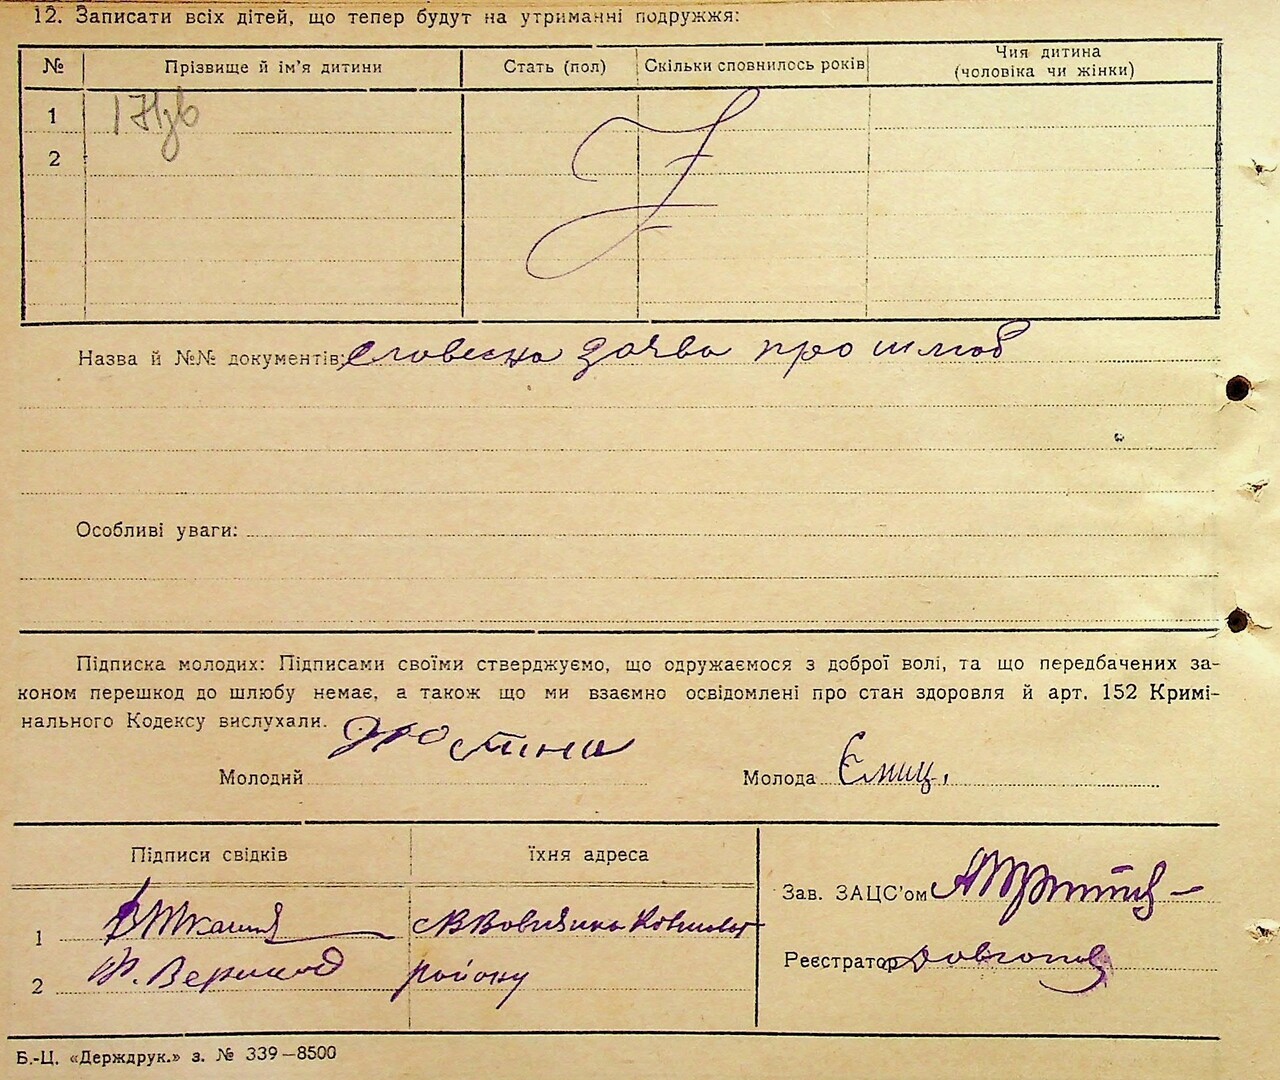 12. Записати всіх дітей, що тепер будут на утриманні подружжя:
№ Прізвище й ім'я дитини Стать (пол) Скільки сповнилось років Чия дитина (чоловіка чи жінки)
1
2
Назва й №№ документів: словесна заява про шлюб
Особливі уваги:
Підписка молодих: Підписами своїми стверджуємо, що одружаємося з доброї волі, та що передбачених за-
коном перешкод до шлюбу немає, а також що ми взаємно освідомлені про стан здоровля й арт. 152 Кримі-
нального Кодексу вислухали.
Молодий Молода
Підписи свідків їхня адреса
Зав. ЗАЦС'ом
1
Реєстратор
2 району
Б.-Ц. «Держдрук.» з. № 339—8500